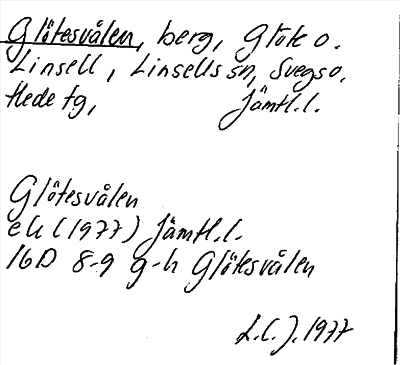 Glötesvålen, berg, Glöte o.
Linsell, Linsells sn, Svegs o.
Hede tg, Jämtl.l.
Glötesvålen
ek (1977) Jämtl.l.
16D 8-9 g-h Glötesvålen
L.C.J. 1977